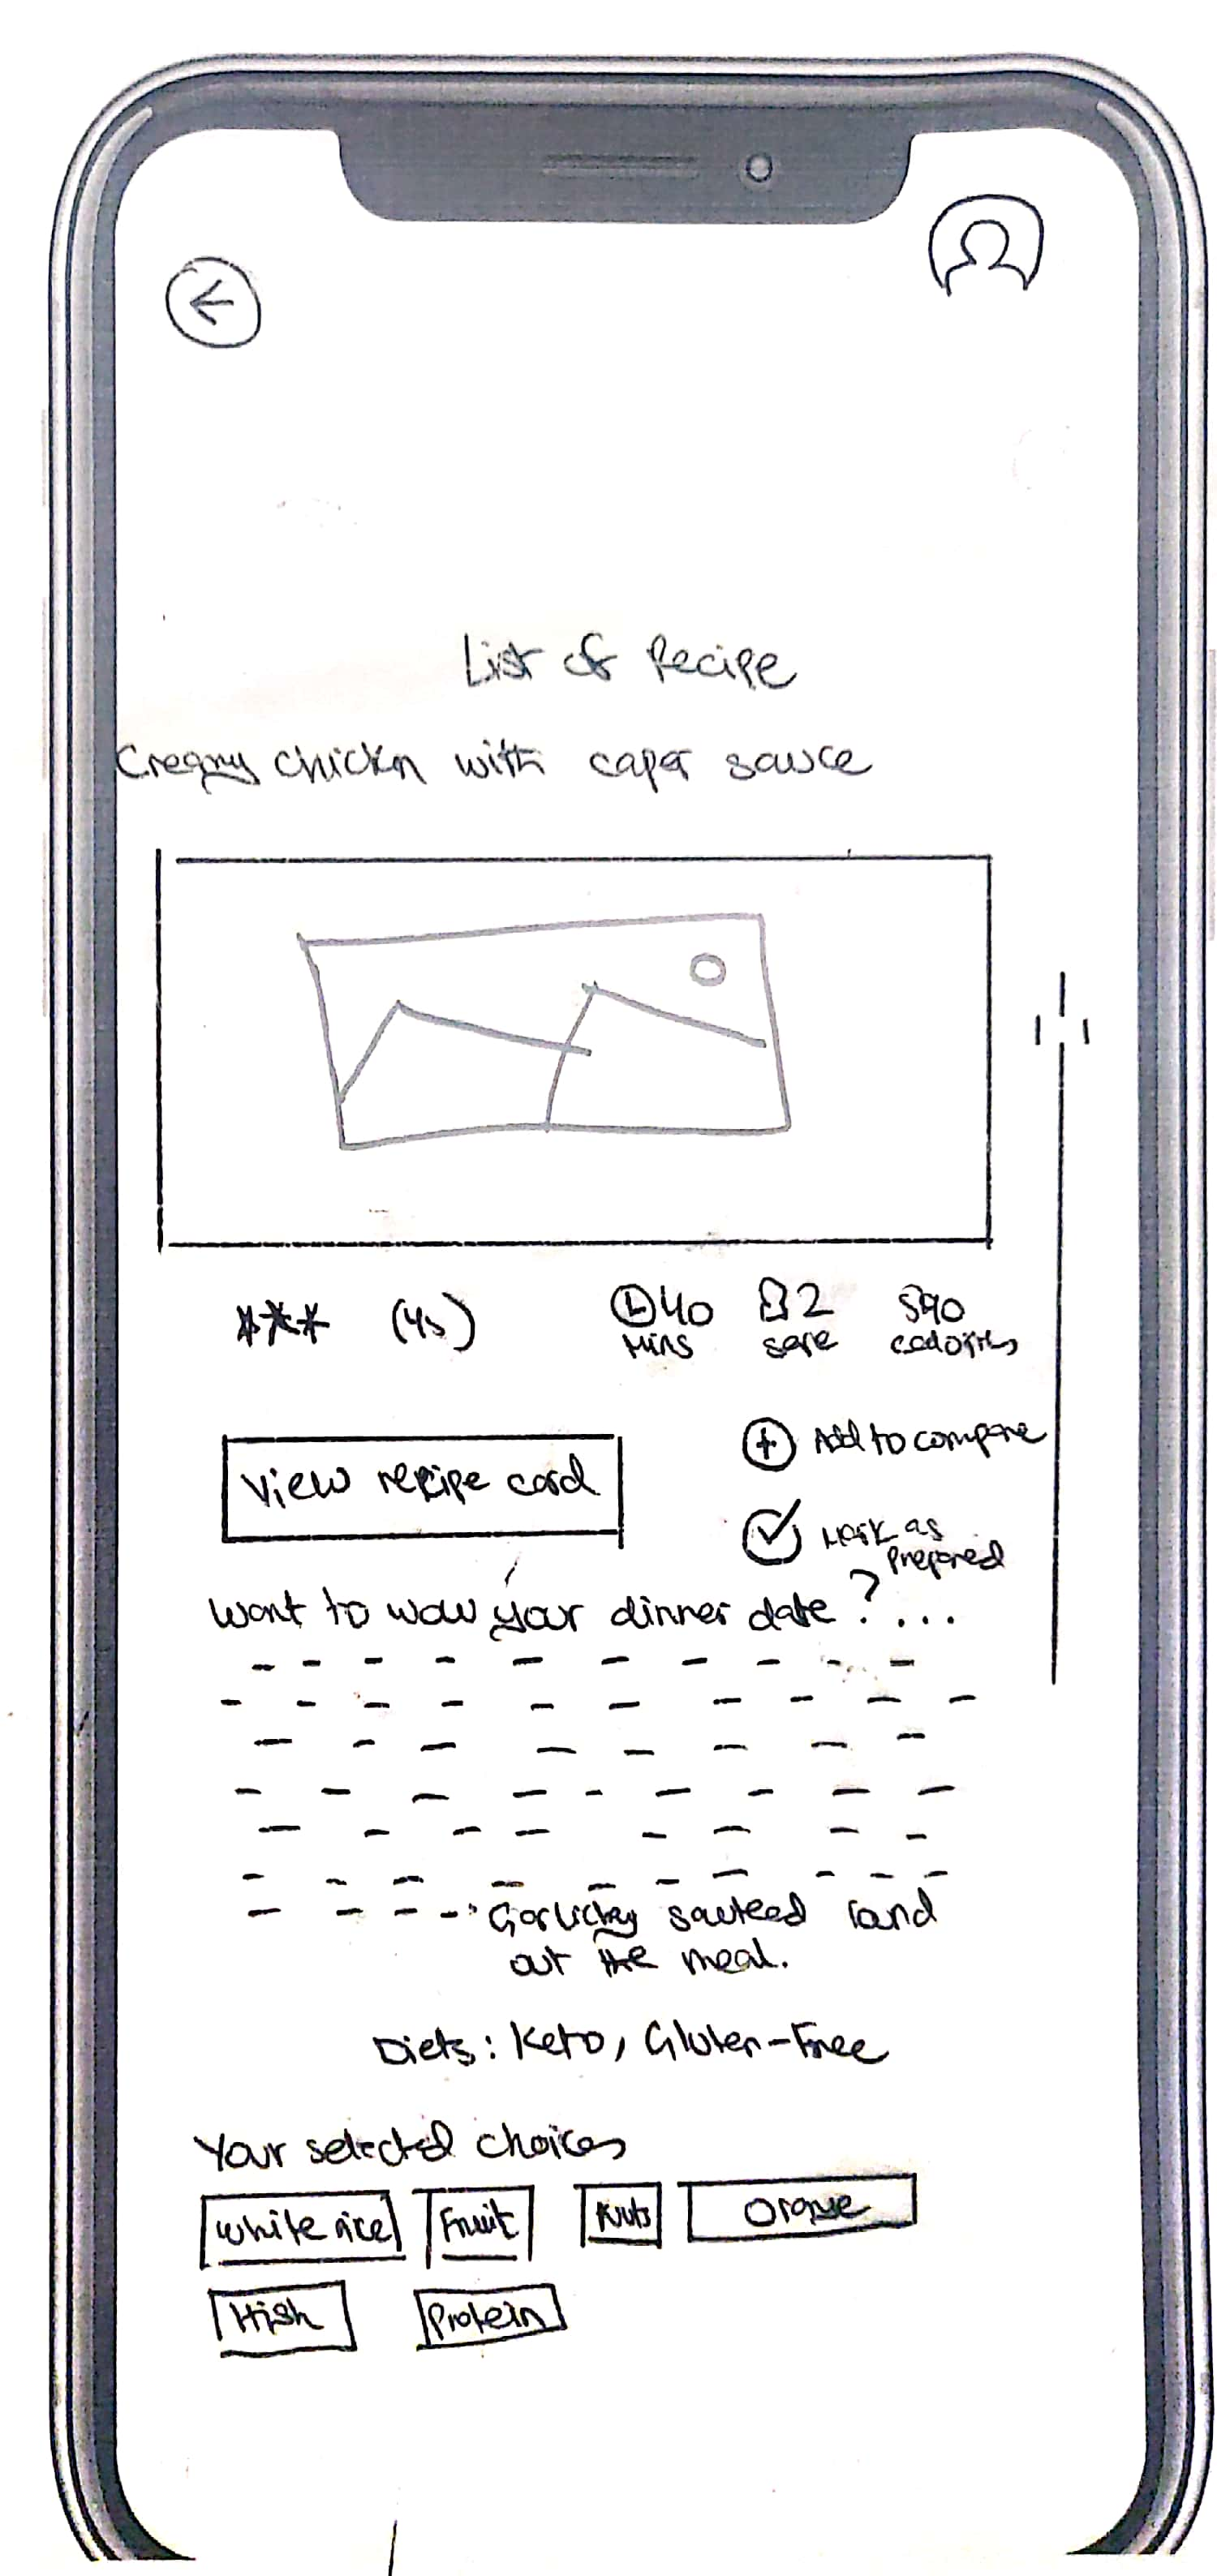 List of Recipe
Creamy chicken with caper sauce
*** (45)
40 mins
2 serve
590 calories
View recipe card
Add to compare
Mark as prepared
Want to wow your dinner date?...
Garlicky sauteed round
out the meal.
Diets: Keto, Gluten-Free
Your selected choices
White rice Fruit Nuts Orange
High Protein